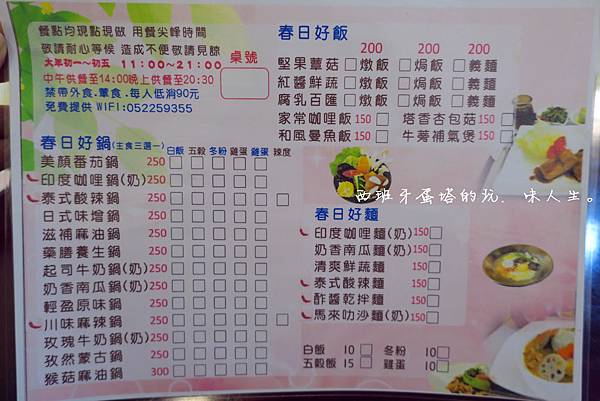 餐點均現點現做 用餐尖峰時間
敬請耐心等候 造成不便敬請見諒
大年初一~初五 11:00~21:00
中午供餐至14:00晚上供餐至20:30
禁帶外食.葷食.每人低消90元
免費提供 WIFI:052259355
桌號
春日好飯
200 200 200
堅果蕈菇 燉飯 焗飯 義麵
紅醬鮮蔬 燉飯 焗飯 義麵
腐乳百匯 燉飯 焗飯 義麵
家常咖哩飯 150 塔香杏包菇 150
和風曼魚飯 150 牛蒡補氣煲 150
春日好鍋(主食三選一) 白飯 五穀 冬粉 雞蛋 雞蛋 辣度
美顏番茄鍋 250
印度咖哩鍋(奶) 250
泰式酸辣鍋 250
日式味增鍋 250
滋補麻油鍋 250
藥膳養生鍋 250
起司牛奶鍋(奶) 250
奶香南瓜鍋(奶) 250
輕盈原味鍋 250
川味麻辣鍋 250
玫瑰牛奶鍋(奶) 250
孜然蒙古鍋 250
猴菇麻油鍋 300
西班牙蛋塔的玩．味人生。
春日好麵
印度咖哩麵(奶) 150
奶香南瓜麵(奶) 150
清爽鮮蔬麵 150
泰式酸辣麵 150
酢醬乾拌麵 150
馬來叻沙麵(奶) 150
白飯 10 冬粉 10
五穀飯 15 雞蛋 10